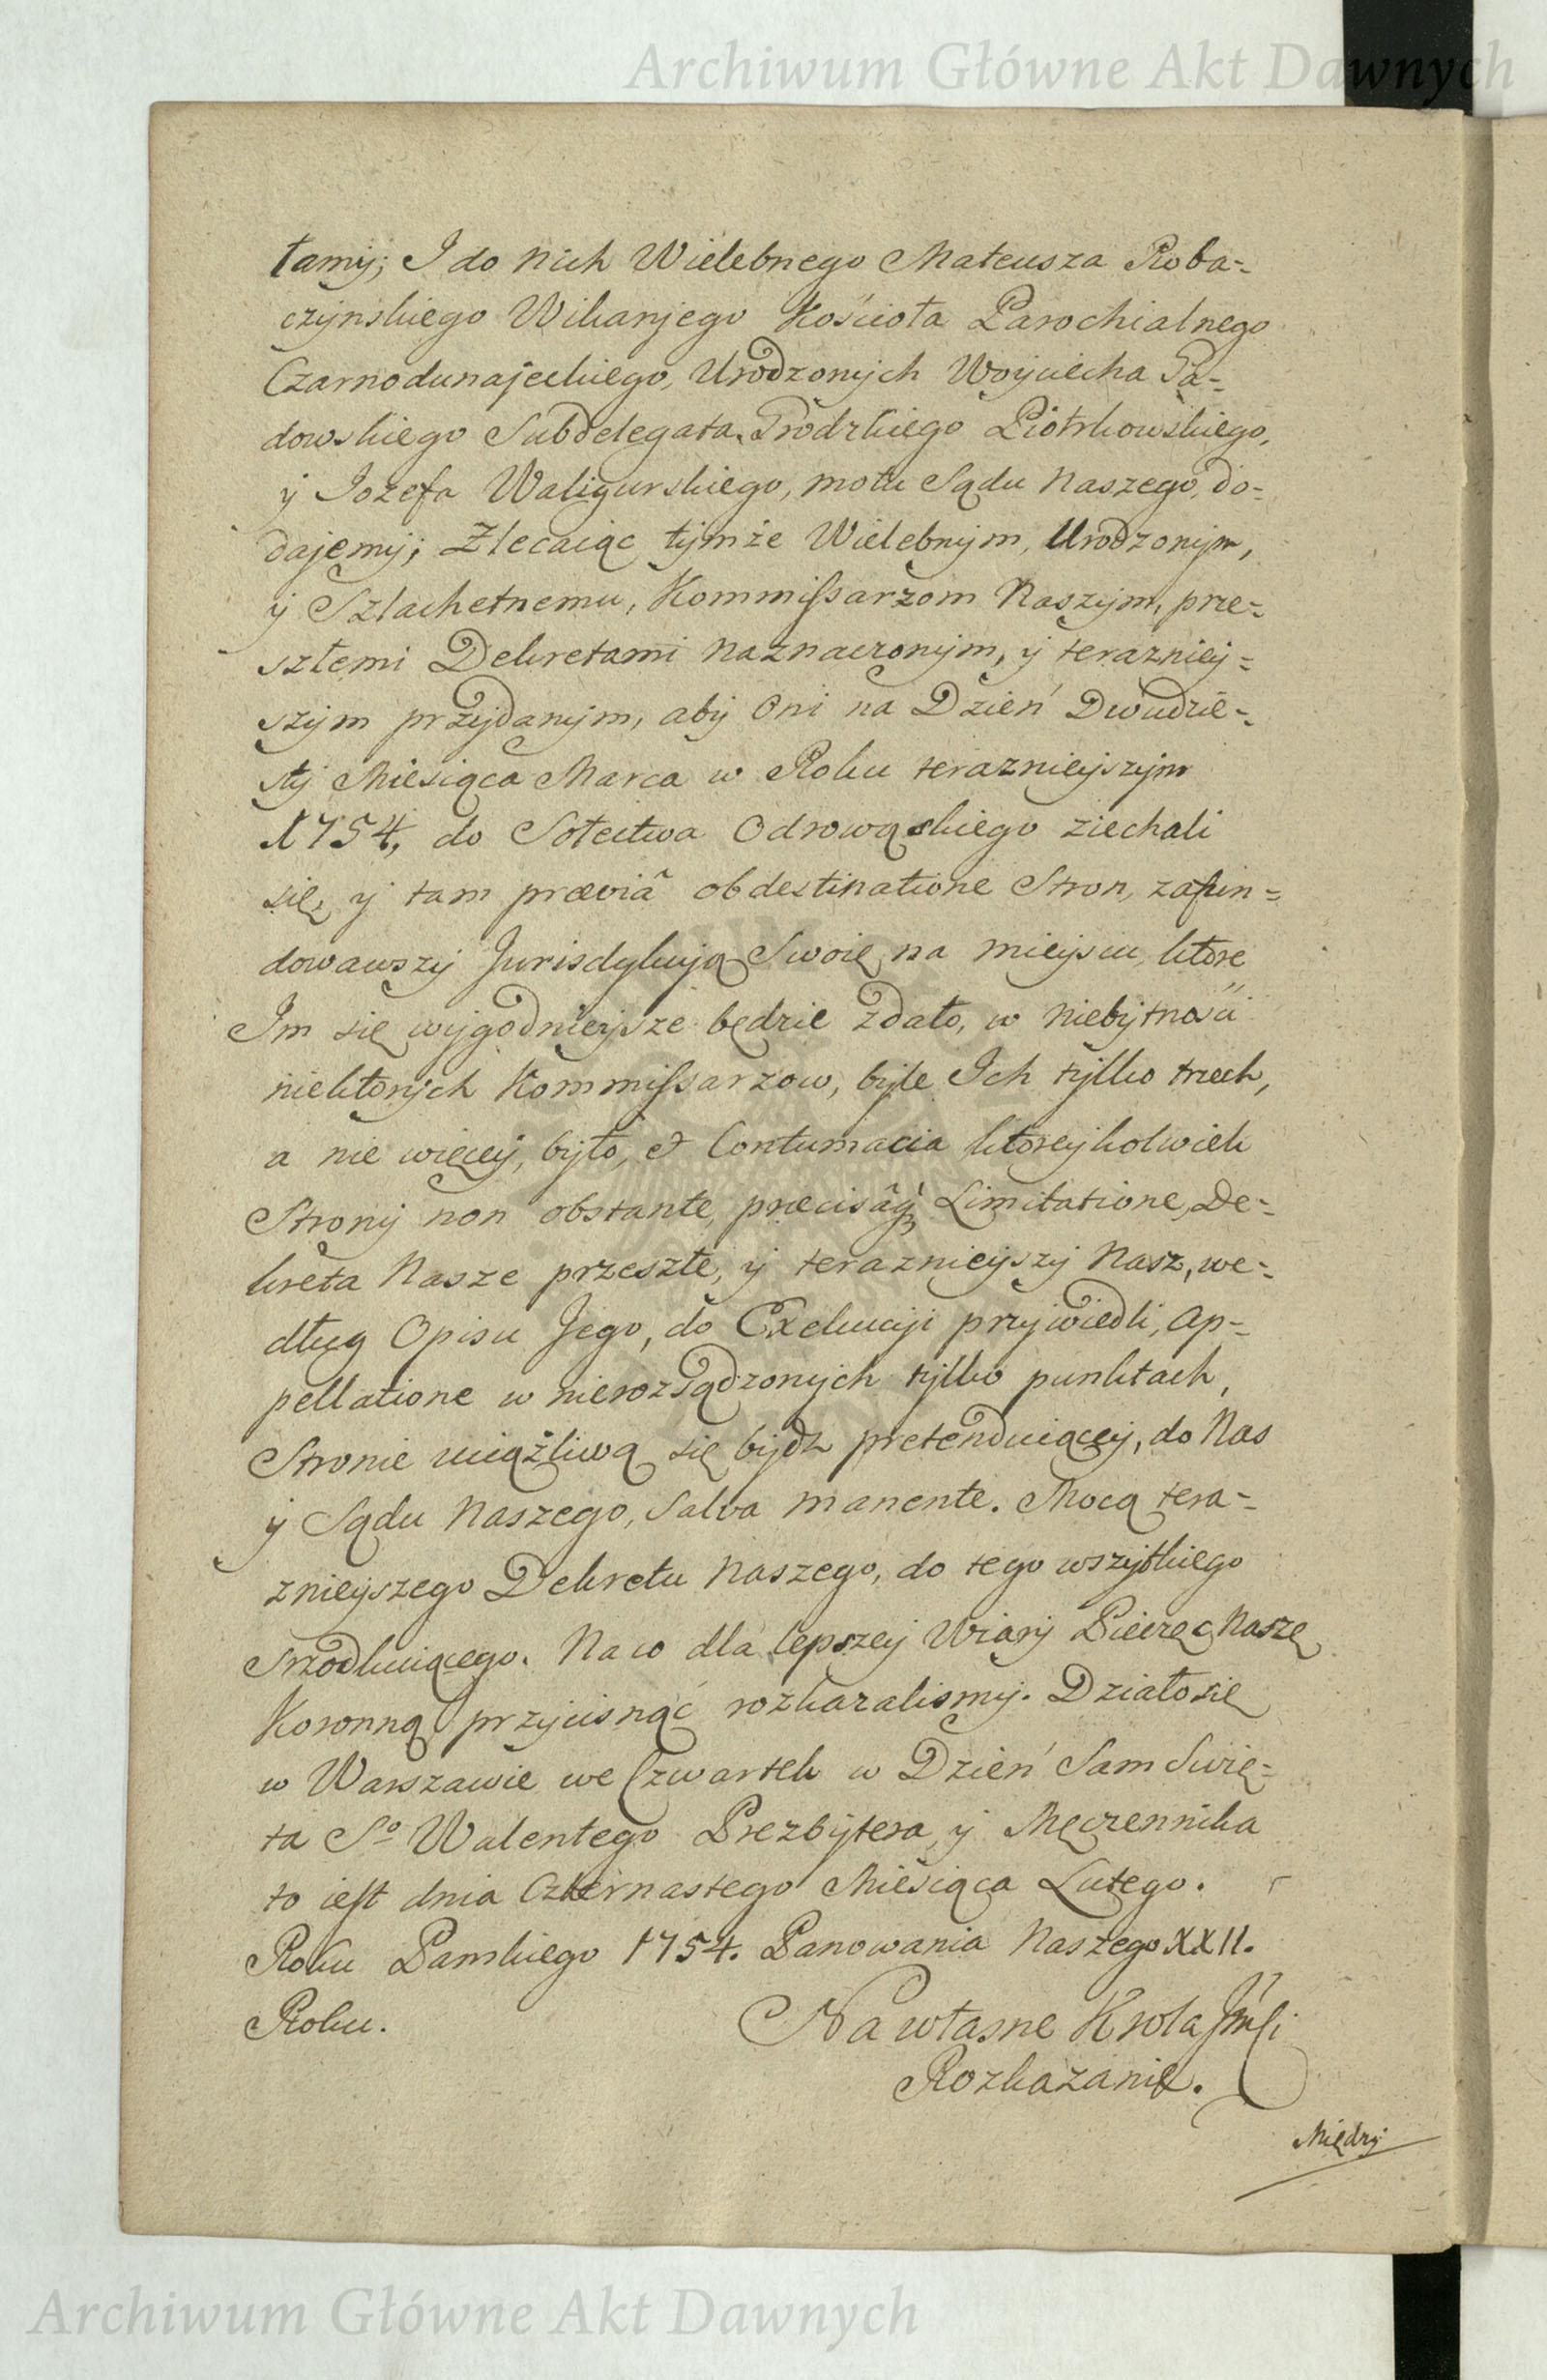 Archiwum Główne Akt Dawnych
łamy; I do nich Wielebnego Mateusza Roba-
czynskiego Wikaryego Kościoła Parochialnego
Czarnodunajeckiego, Urodzonych Woyciecha Sa-
dowskiego Subdelegata Grodzkiego Piotrkowskiego,
y Jozefa Waligurskiego, motu Sądu Naszego, do-
dajemy; Zlecaiąc tymże Wielebnym, Urodzonym,
y Szlachetnemu, Kommissarzom Naszym, prze-
szłemi Dekretami naznaczonym, y terazniey-
szym przydanym, aby Oni na Dzień Dwudzie-
sty Miesiąca Marca w Roku teraznieyszym
1754, do Sołectwa Odrowąskiego ziechali
się, y tam præviâ obdestinatione Stron, zafun-
dowawszy Jurisdykcyą Swoię na mieyscu, ktore
Im się wygodnieysze będzie zdało, w niebytności
niektorych Kommissarzow, byle Ich tylko trzech,
a nie więcey, było, et Contumacia ktoreykolwiek
Strony non obstante, præcisâq; Limitatione, De-
kreta Nasze przeszłe, y teraznieyszy Nasz, we-
dług Opisu Jego, do Exekucyi przywiedli, Ap-
pellatione w nierozsądzonych tylko punktach,
Stronie uciążliwą się bydz pretenduiącey, do Nas
y Sądu Naszego, salva manente. Mocą tera-
znieyszego Dekretu Naszego, do tego wszytkiego
srzodkuiącego. Na co dla lepszey Wiary Pieczęć Naszę
Koronną przycisnąć rozkazalismy. Działo się
w Warszawie we Czwartek w Dzień Sam Swię-
ta So Walentego Prezbytera y Męczennika
to iest dnia Czternastego Miesiąca Lutego.
Roku Panskiego 1754. Panowania Naszego XXII.
Roku.
Na własne Krola Jmci
Rozkazanie.
Między
Archiwum Główne Akt Dawnych